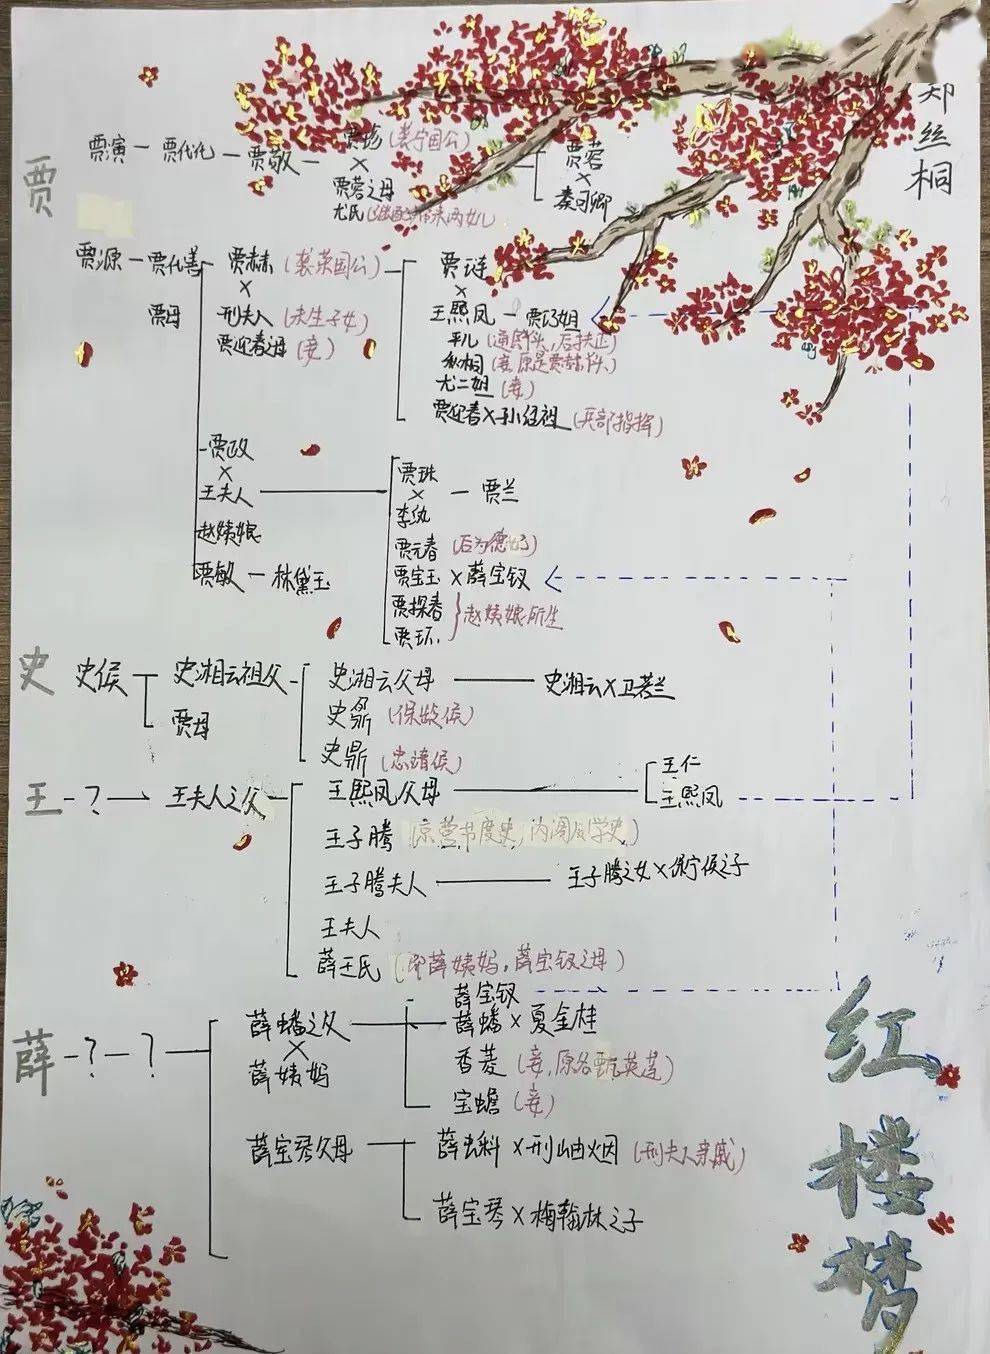 郑丝桐
贾
贾演 — 贾代化 — 贾敬 — 贾珍 (袭宁国公)
×
贾蓉之母
尤氏
贾蓉
×
秦可卿
贾源 — 贾代善
贾母
贾赦 (袭荣国公)
×
刑夫人 (未生子女)
贾迎春母 (妾)
贾琏
×
王熙凤 — 贾巧姐
平儿 (通房丫头, 后扶正)
秋桐 (妾, 原是贾赦丫头)
尤二姐 (妾)
贾迎春 × 孙绍祖 (兵部指挥)
贾政
×
王夫人
赵姨娘
贾敏 — 林黛玉
贾珠
× — 贾兰
李纨
贾元春 (后为德妃)
贾宝玉 × 薛宝钗
贾探春
贾环
} 赵姨娘所生
史 史侯
史湘云祖父
贾母
史湘云父母 史湘云 × 卫若兰
史鼐 (保龄侯)
史鼎 (忠靖侯)
王 — ? → 王夫人之父
王熙凤父母
王仁
王熙凤
王子腾 (京营节度史, 内阁大学史)
王子腾夫人 王子腾之女 × 保宁侯之子
王夫人
薛王氏 (即薛姨妈, 薛宝钗之母)
薛 — ? — ?
薛蟠之父
×
薛姨妈
薛宝钗
薛蟠 × 夏金桂
香菱 (妾, 原名甄英莲)
宝蟾 (妾)
薛宝琴父母
薛蝌 × 刑岫烟 (刑夫人亲戚)
薛宝琴 × 梅翰林之子
红楼梦